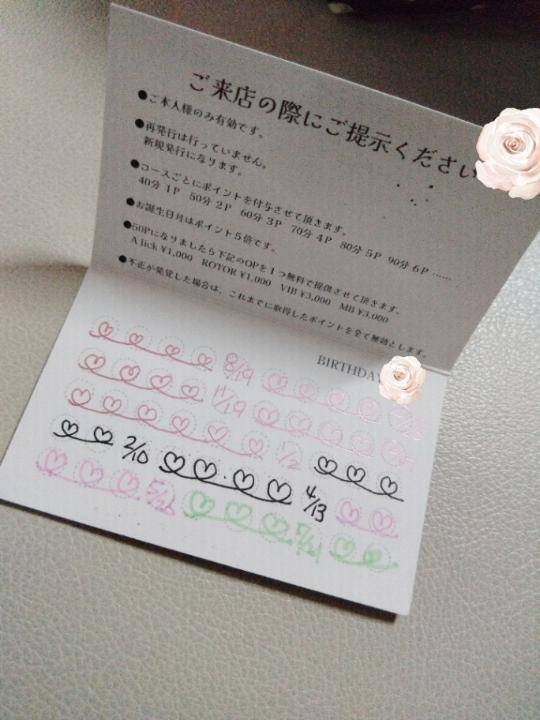 ご来店の際にご提示ください
●ご本人様のみ有効です。
●再発行は行っていません。
新規発行になります。
●コースごとにポイントを付与させて頂きます。
40分 1P 50分 2P 60分 3P 70分 4P 80分 5P 90分 6P ……
●お誕生日月はポイント5倍です。
●50Pになりましたら下記のOPを1つ無料で提供させて頂きます。
A lick ¥1,000 ROTOR ¥1,000 VIB ¥3,000 MB ¥3,000
●不正が発覚した場合は、これまでに取得したポイントを全て無効とします。
BIRTHDAY
8/19
11/19
1/2
2/10 4/13